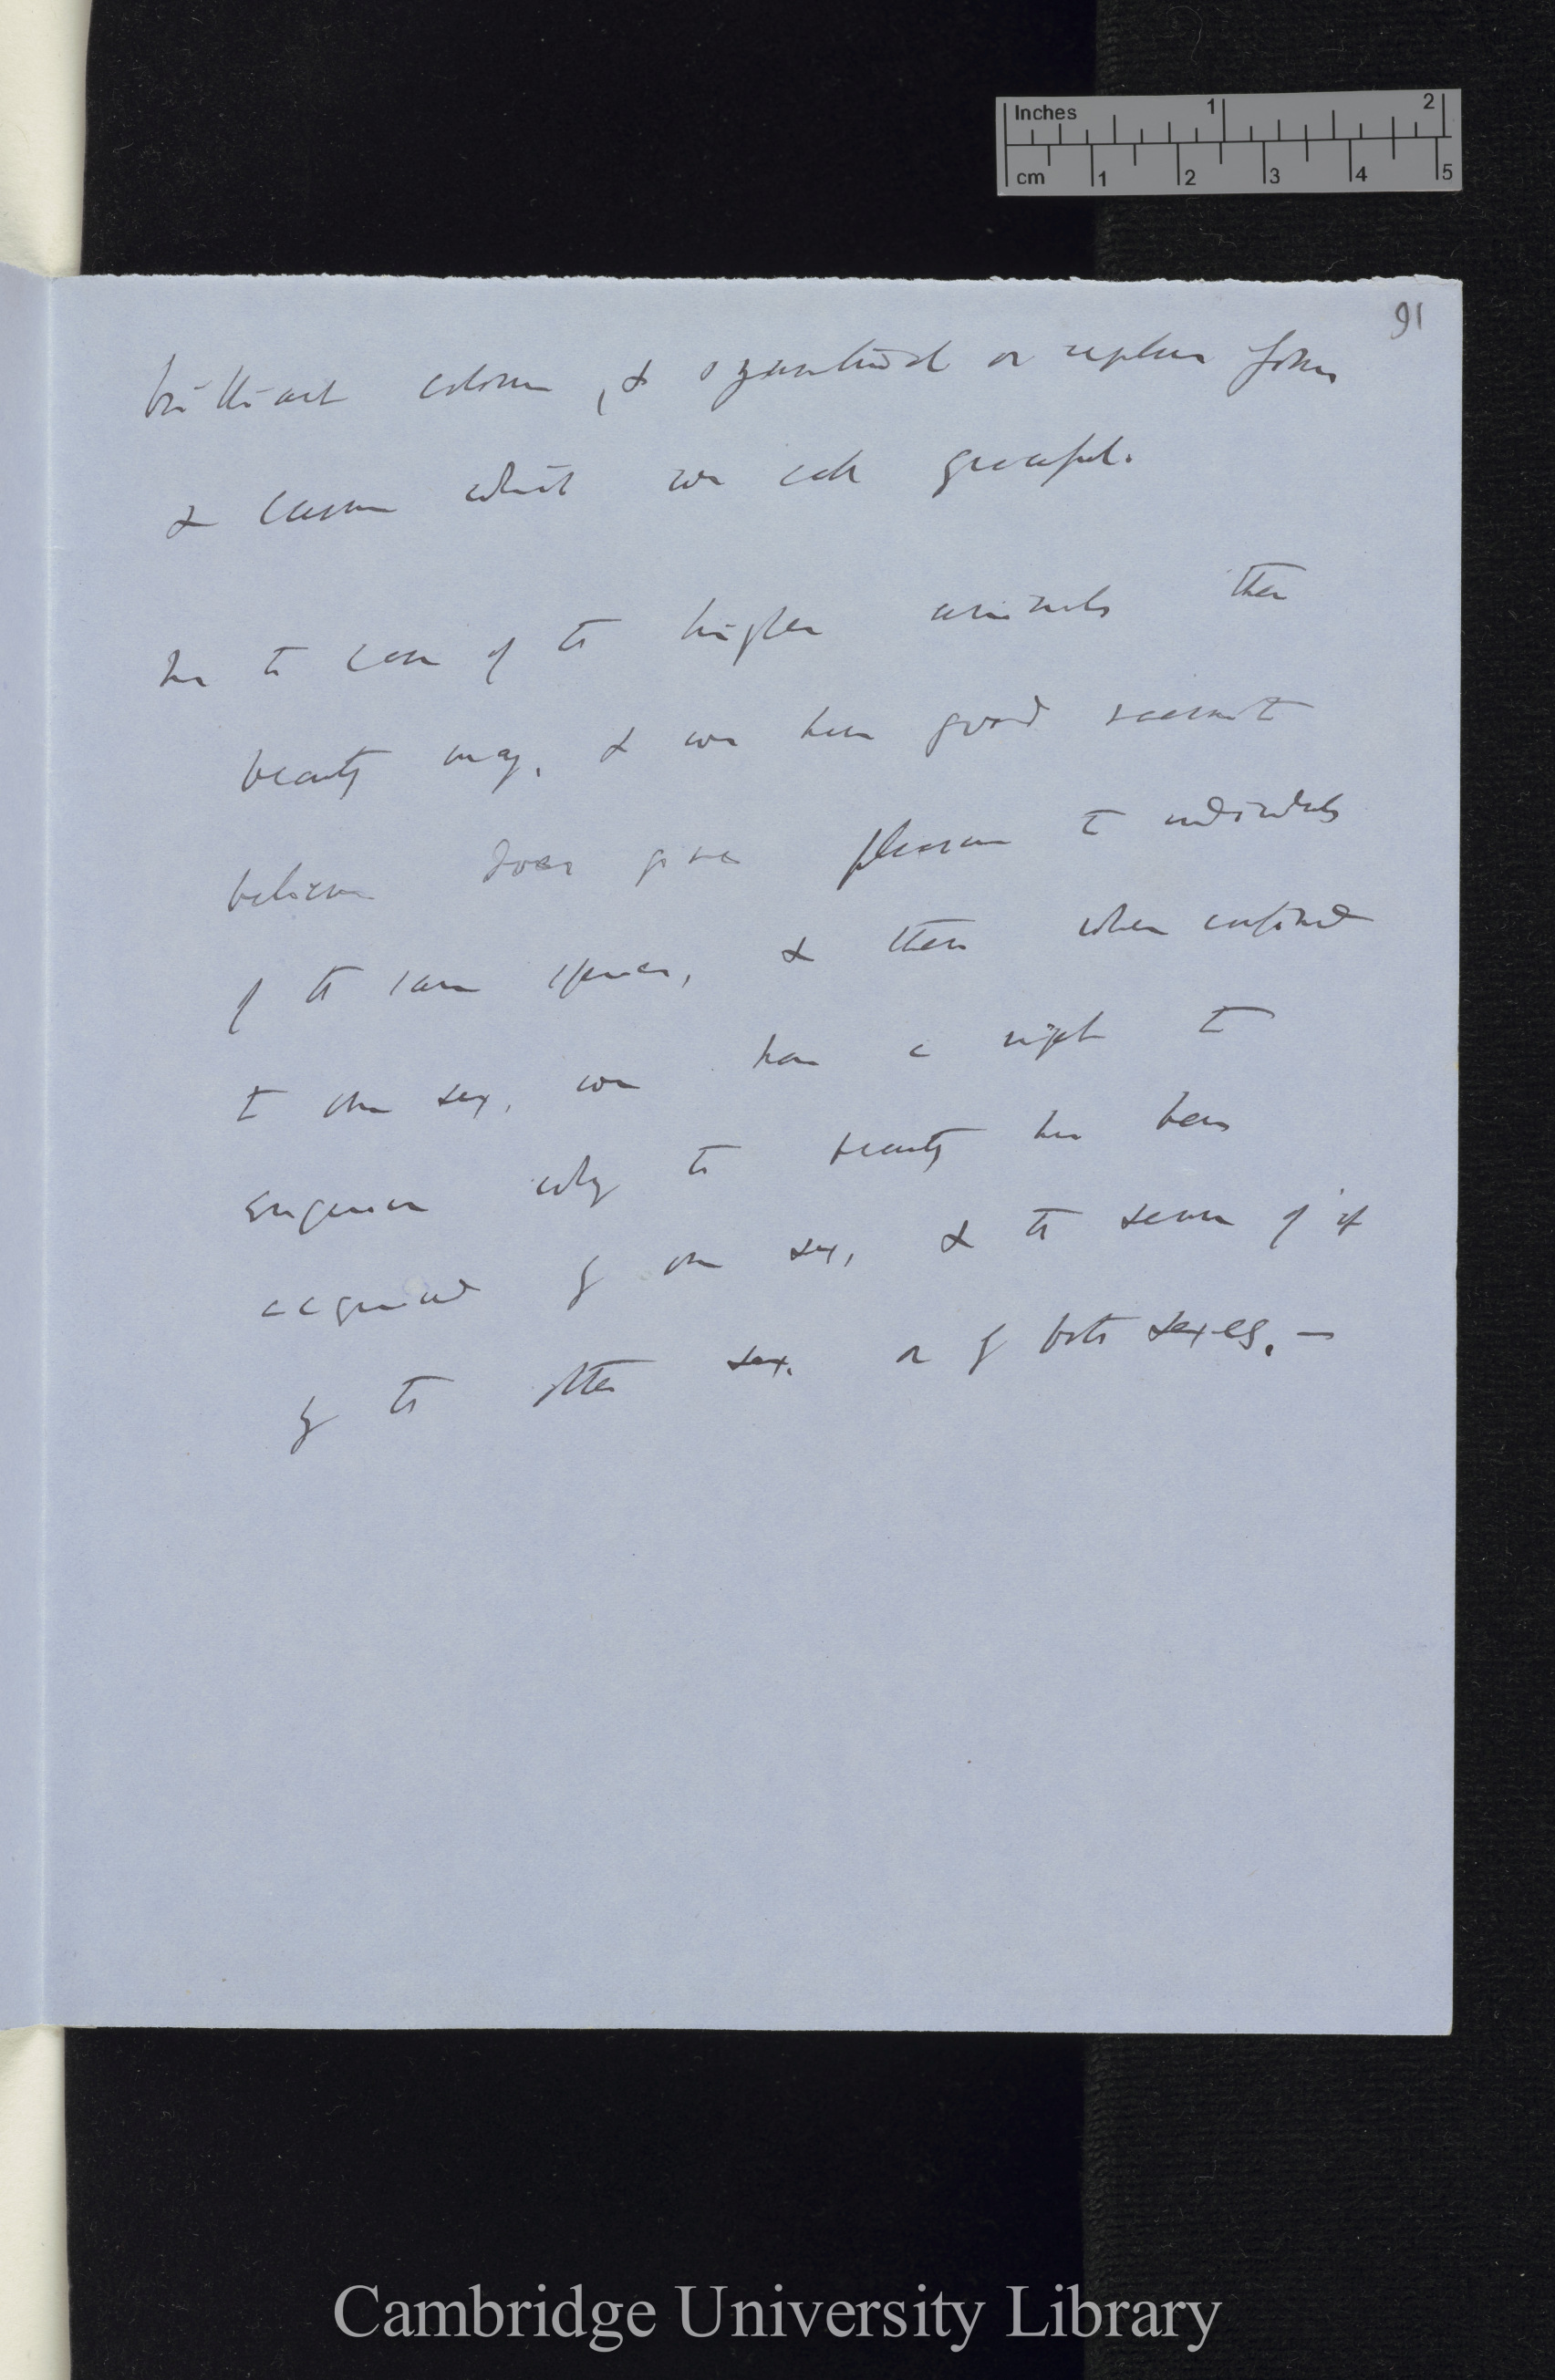 Inches 1 2
cm 1 2 3 4 5
91
brilliant colours, & symmetrical or regular forms
& curves which we call graceful.
In the case of the higher animals their
beauty may, & we have good reason to
believe does give pleasure to individuals
of the same species, & then when confined
to one sex, we have a right to
enquire why the beauty has been
acquired by one sex, & the sense of it
by the other sex. or by both sexes. —
Cambridge University Library